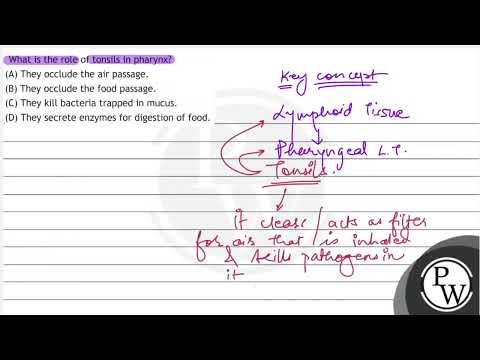 What is the role of tonsils in pharynx?
(A) They occlude the air passage.
(B) They occlude the food passage.
(C) They kill bacteria trapped in mucus.
(D) They secrete enzymes for digestion of food.
Key concept
Lymphoid Tissue
Pharyngeal L.T.
Tonsils.
it clears / acts as filter
for air that is inhaled
& kills pathogens in
it
PW